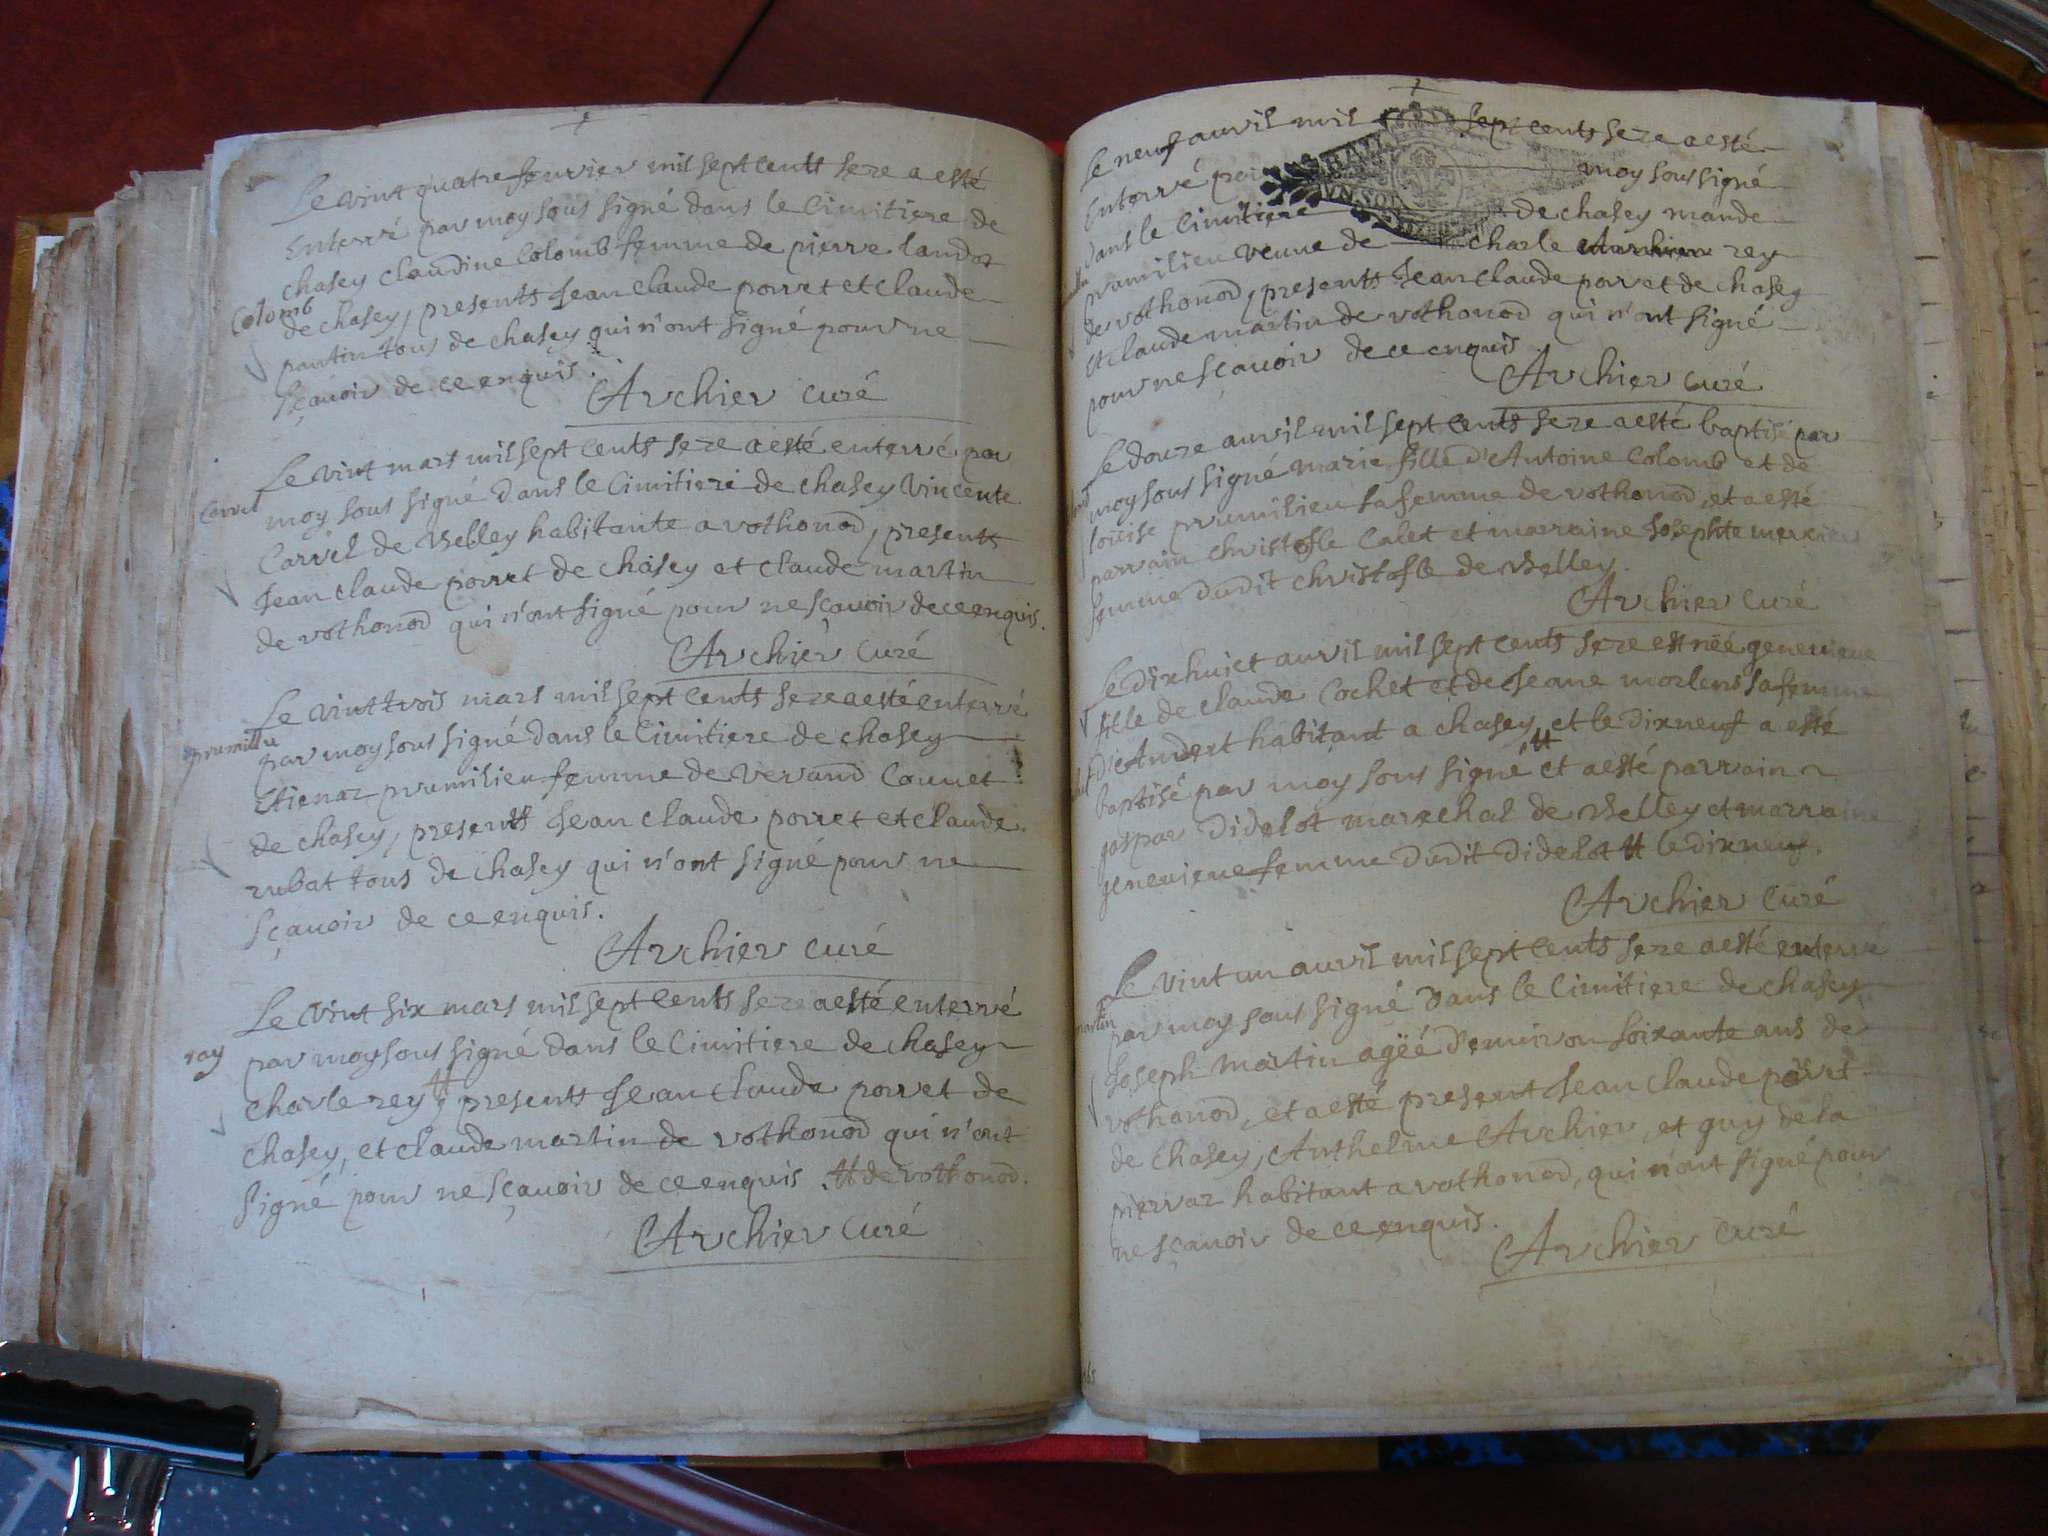 Le vint quatre feuvrier mil sept cents seze a esté
Enterré par moy sous signé dans le Cimitiere de
chasey claudine Colomb femme de pierre landoz
Colomb
de chasey, presents Jean claude porret et claude
pantin tous de chasey qui n'ont signé pour ne
sçavoir de ce enquis.
Archier curé
Le vint mars mil sept cents seze a esté enterré par
Carrel
moy sous signé dans le Cimitiere de chasey Vincente
Carrel de Belley habitante a vothonod, presents
Jean claude porret de chasey et claude martin
de vothonod qui n'ont signé pour ne sçavoir de ce enquis.
Archier curé
Le vint trois mars mil sept cents seze a esté enterré
prumillieu
par moy sous signé dans le Cimitiere de chasey
Etienaz prumilieu femme de Verand Counet
de chasey, presents Jean claude porret et claude
rubat tous de chasey qui n'ont signé pour ne
sçavoir de ce enquis.
Archier curé
Le Vint six mars mil sept cents seze a esté enterré
ray
par moy sous signé dans le Cimitiere de chasey
charle rey # presents Jean claude porret de
chasey, et claude martin de vothonod qui n'ont
signé pour ne sçavoir de ce enquis. # de vothonod.
Archier curé
Le neuf auvril mil sept cents seze a esté
Enterré par moy sous signé
dans le Cimitiere de chasey mande
pramilieu veuve de charle rey
de vothonod, presents Jean claude porret de chasey
et claude martin de vothonod qui n'ont signé
pour ne sçavoir de ce enquis
Archier curé
Le douze auvril mil sept cents seze a esté baptisé par
moy sous signé marie fille d'Antoine Colomb et de
loüise prumilieu sa femme de vothonod, et a esté
parrain christofle Calet et marraine Josephte mercier
femme dudit christofle de Belley.
Archier curé
Le dixhuict auvril mil sept cents seze est née genevieve
fille de claude Cochet et de Jeane morlens sa femme
d'Andert habitant a chasey, et le dixneuf a esté
baptisé par moy sous signé # et a esté parrain
gaspar Didelot marechal de Belley et marraine
genevieve femme dudit Didelot # le dixneuf.
Archier curé
Le vint un auvril mil sept cents seze a esté enterré
martin
par moy sous signé dans le Cimitiere de chasey
Joseph martin agëé d'enuiron soixante ans de
vothonod, et a esté present Jean claude porret
de chasey, Anthelme Archier, et guy de la
pierraz habitant a vothonod, qui n'ont signé pour
ne sçavoir de ce enquis.
Archier curé